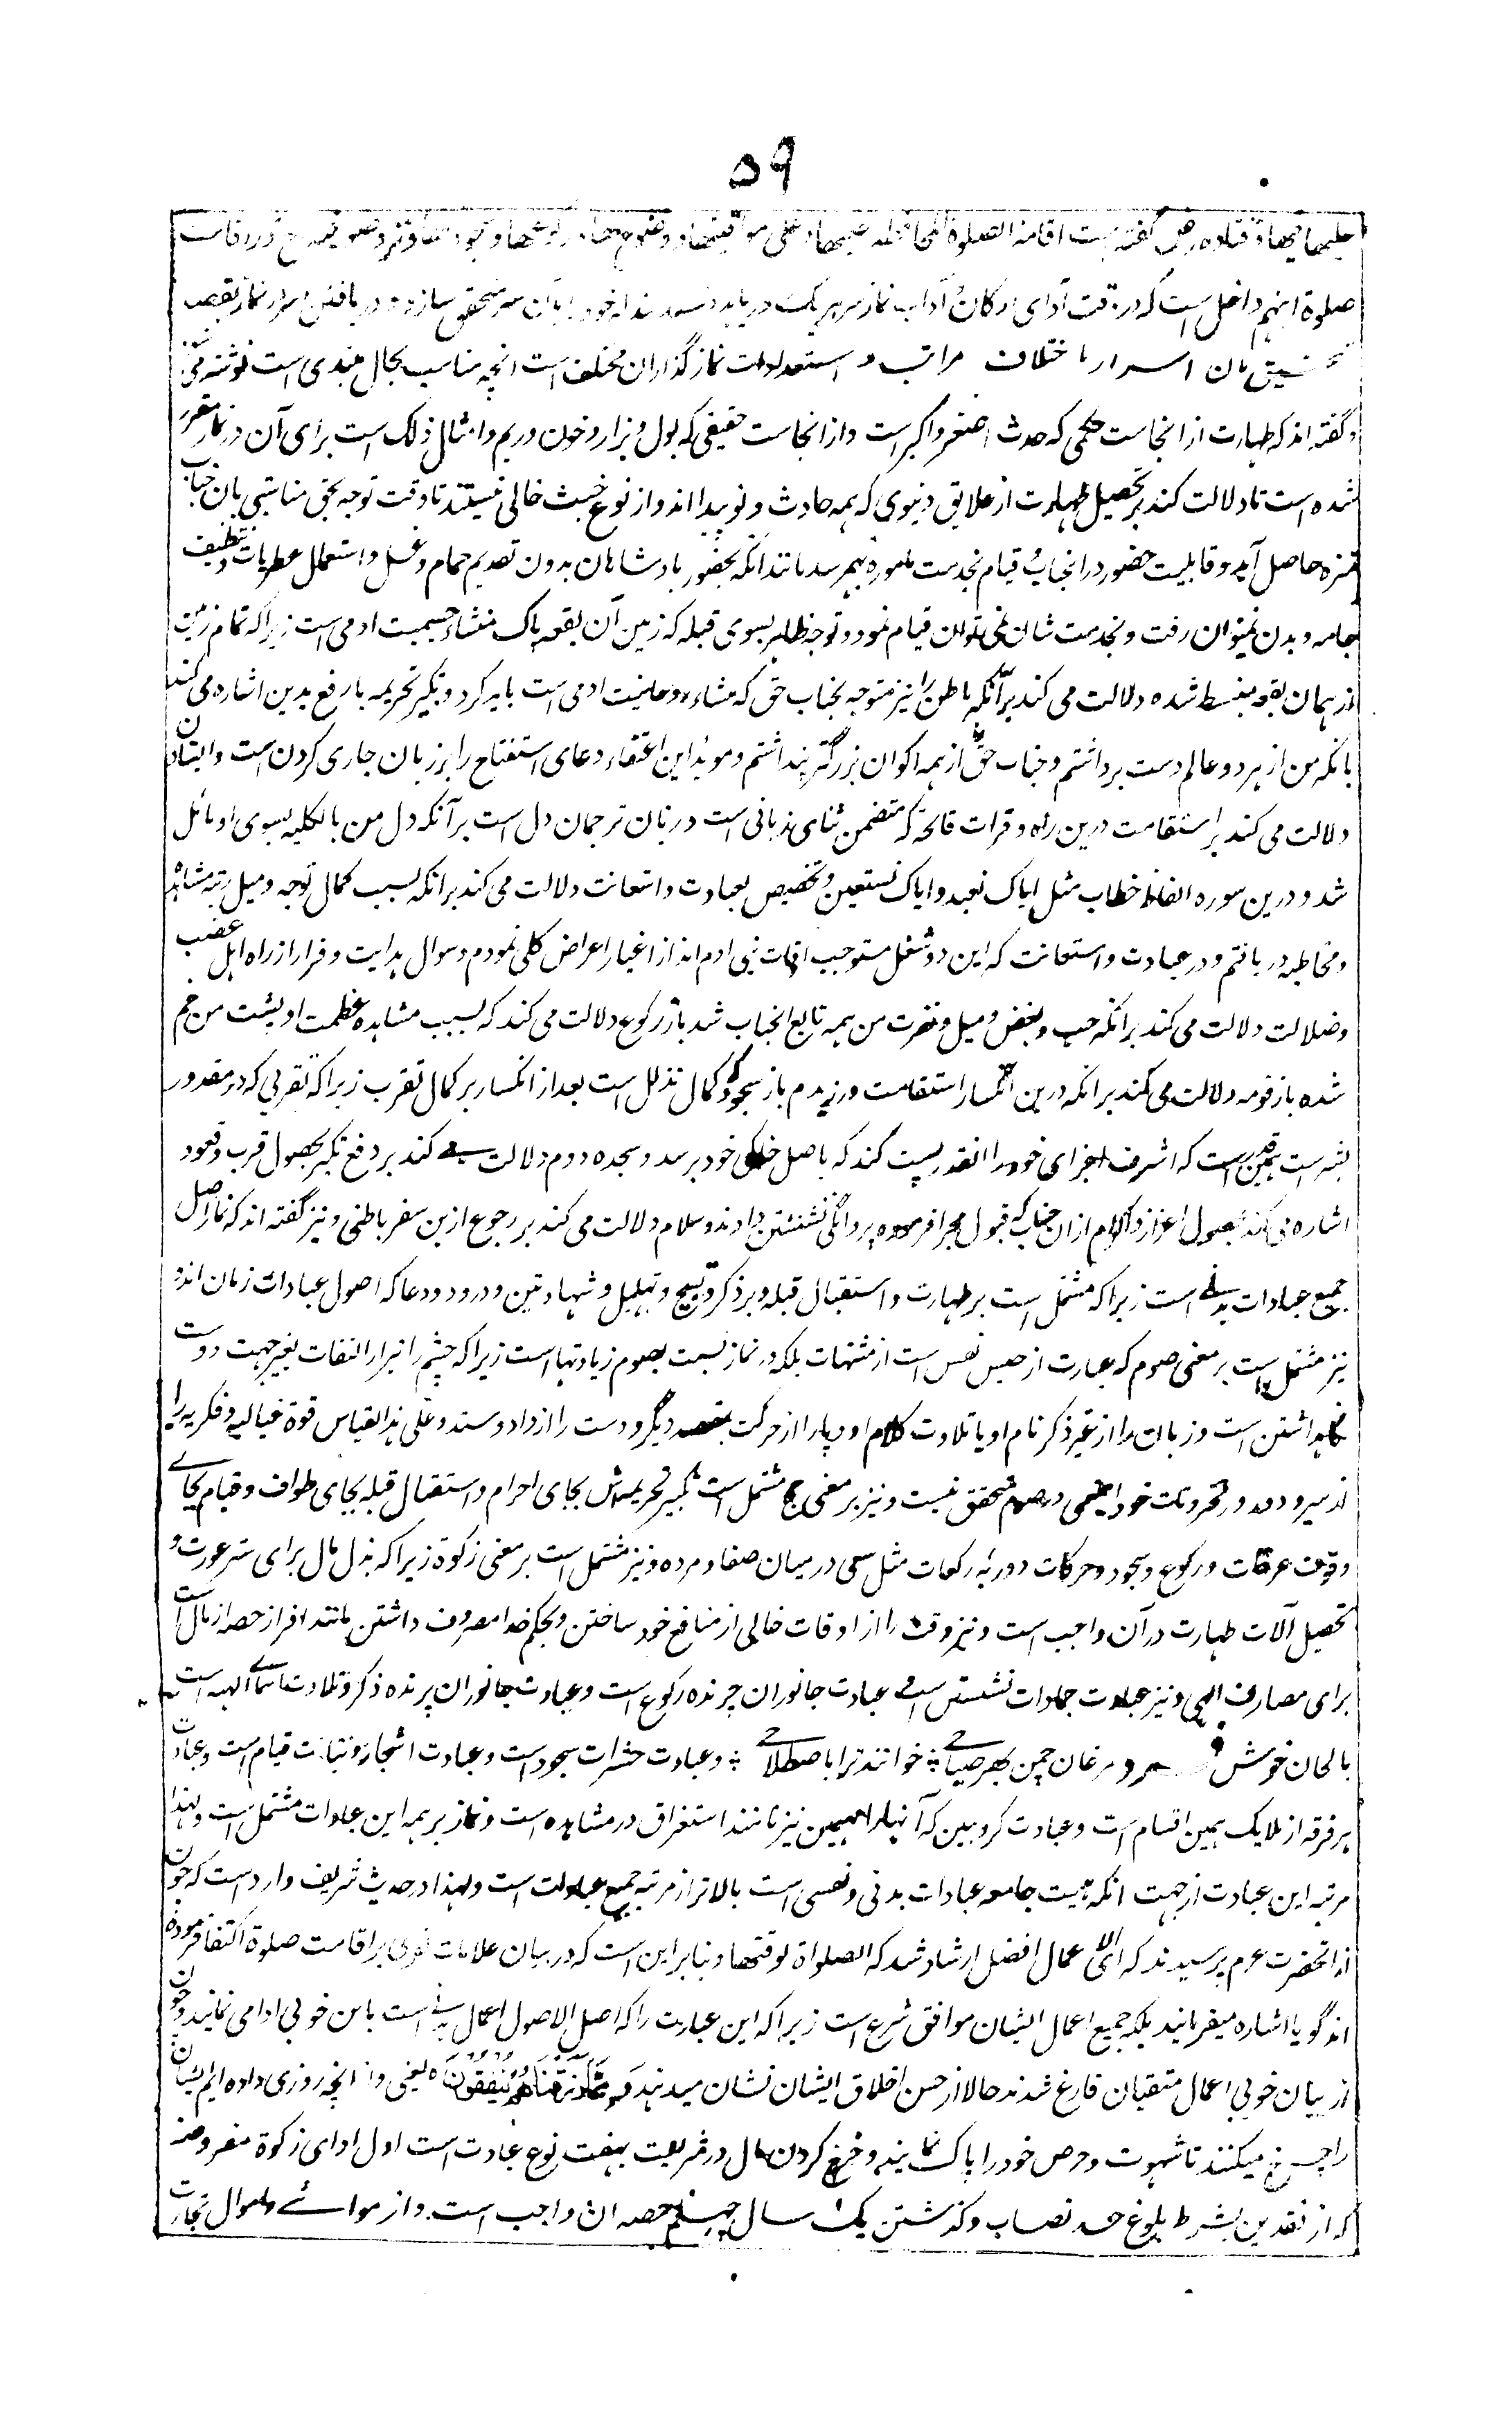 ۵۹
علیها فیها و قتاده رض گفته است اقامة الصلوة المحافظة علیها و علی مواقیتها و وضوءها و رکوعها و سجودها و نزد صوفیه در اقامت
صلوة اینهم داخل است که در وقت ادای ارکان و آداب نماز سر هر یک دریابد و خود را بآن سر متحقق سازد و دریافتن اسرار نماز
بآن اسرار باختلاف مراتب و استعدادات نماز گذاران مختلف است انچه مناسب بحال مبتدی است نوشته می
و گفته اند که طهارت از نجاست حکمی که حدث اصغر و اکبر است و از نجاست حقیقی که بول و براز و خون و ریم و امثال ذلک است برای آن در نماز مقرر
شده است تا دلالت کند بر تحصیل طهارت از علایق دنیوی که همه حادث و نو پیدا اند و از نوع خبث خالی نیستند تا وقت توجه بحق مناسبتی بآن جناب
منزه حاصل آید و قابلیت حضور در انجناب و قیام بخدمت ماموره بهم رسد مانند آنکه بحضور بادشاهان بدون تقدیم حمام و غسل و استعمال عطریات و تنظیف
جامه و بدن نمیتوان رفت و بخدمت شان نمی توان قیام نمود و توجه ظاهر بسوی قبله که زمین آن بقعه پاک منشاء جسمیت ادمی است زیراکه تمام زمین
از همان بقعه منبسط شده دلالت می کند بر آنکه باطن را نیز متوجه بجناب حق که منشاء روحانیت ادمی است باید کرد و تکبیر تحریمه با رفع یدین اشاره می کند
بانکه من از هر دو عالم دست برداشتم و جناب حق را از همه اکوان بزرگتر پنداشتم و موید این اعتقاد دعای استفتاح را بر زبان جاری کردن است و ایستادن
دلالت می کند بر استقامت درین راه و قرات فاتحه که متضمن ثنای زبانی است و زبان ترجمان دل است بر آنکه دل من بالکلیه بسوی او مائل
شد و درین سوره الفاظ خطاب مثل ایاک نعبد و ایاک نستعین و تخصیص بعبادت و استعانت دلالت می کند برانکه بسبب کمال توجه و میل رتبه مشاهده
و مخاطبه دریافتم و در عبادت و استعانت که این دو شغل مستوجب اوقات بنی ادم اند از اغیار اعراض کلی نمودم و سوال هدایت و فرار از راه اهل غضب
و ضلالت دلالت می کند برانکه حب و بغض و میل و نفرت من همه تابع انجناب شد باز رکوع دلالت می کند که بسبب مشاهده عظمت او پشت من خم
شده باز قومه دلالت می کند برانکه درین انکسار استقامت ورزیدم باز سجود که کمال تذلل است بعد از انکسار بر کمال تقرب زیراکه تقربی که در مقدور
بشر است همین است که اشرف اجزای خود را انقدر پست کند که باصل خاکی خود برسد و سجده دوم دلالت می کند بر دفع تکبر بحصول قرب و قعود
اشاره می کند بحصول اعزاز و اکرام ازان جناب که قبول مجرا فرموده پروانگی نشستن دادند و سلام دلالت می کند بر رجوع ازین سفر باطنی و نیز گفته اند که نماز اصل
جمیع عبادات بدنی است زیراکه مشتمل است بر طهارت و استقبال قبله و بر ذکر و تسبیح و تهلیل و شهادتین و درود و دعا که اصول عبادات زبان اند و
نیز مشتمل است بر معنی صوم که عبارت از حبس نفس است از مشتهیات بلکه در نماز نسبت بصوم زیادتیها است زیراکه چشم را نیز از التفات بغیر جهت دوست
نگاهداشتن است و زبان را از غیر ذکر نام او یا تلاوت کلام او و پا را از حرکت بقصد دیگر و دست را از داد و ستد و علی هذا القیاس قوة خیالیه و فکریه را
از سیر و دور در محزونات خود و این معنی در صوم متحقق نیست و نیز بر معنی حج مشتمل است تکبیر تحریمه اش بجای احرام و استقبال قبله بجای طواف و قیام بجای
وقوف عرفات و رکوع و سجود و حرکات دوریه رکعات مثل سعی درمیان صفا و مروه و نیز مشتمل است بر معنی زکوة زیراکه بذل مال برای ستر عورت و
تحصیل آلات طهارت در آن واجب است و نیز وقت را از اوقات خالی از منافع خود ساختن و بحکم خدا مصروف داشتن مانند افراز حصه از مال است
برای مصارف الهی و نیز عبادت جمادات نشستن است و عبادت جانوران چرنده رکوع است و عبادت جانوران پرنده ذکر و تلاوت اسمای الهیه است
بالحان خوش فرد مرغان چمن بهر صباحی ؛ خوانند ترا باصطلاحی ؛ و عبادت حشرات سجود است و عبادت اشجار و نباتات قیام است و عبادت
هر فرقه از ملایک همین اقسام است و عبادت کروبین که آنها را مهیمین نیز نامند استغراق در مشاهده است و نماز بر همه این عبادات مشتمل است و لهذا
مرتبه این عبادت از جهت انکه هیئت جامعه عبادات بدنی و نفسی است بالاتر از مرتبه جمیع عبادات است و لهذا در حدیث شریف وارد است که چون
از انحضرت صلعم پرسیدند که ای الاعمال افضل ارشاد شد که الصلواة لوقتها و بنا بر این است که در بیان علامات تقوی بر اقامت صلوة اکتفا فرموده
اند گویا اشاره میفرمانید بلکه جمیع اعمال ایشان موافق شرع است زیراکه این عبادت را که اصل الاصول اعمال بدنی است باین خوبی ادا می نمایند و چون
از بیان خوبی اعمال متقیان فارغ شدند حالا از حسن اخلاق ایشان نشان میدهند که وَمِمَّا رَزَقْنَاهُمْ يُنْفِقُونَ ه یعنی و از انچه روزی داده ایم ایشان
را خرچ میکنند تا شهوت و حرص خود را پاک نمایند و خرچ کردن مال در شریعت هفت نوع عبادت است اول ادای زکوة مفروضه
که از نقدین بشرط بلوغ حد نصاب و گذشتن یک سال چهلم حصه ان واجب است و از مواشی و اموال تجارت